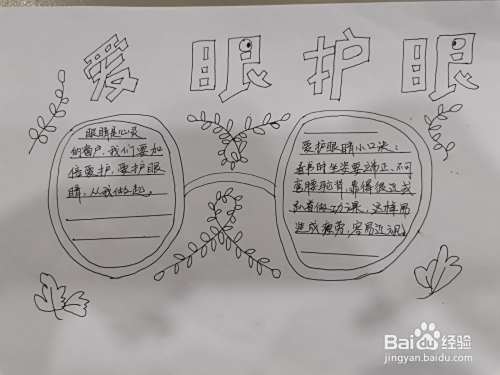 爱眼护眼
眼睛是心灵
的窗户，我们要加
倍爱护，爱护眼
睛，从我做起。
爱护眼睛小口诀：
看书时坐姿要端正，不可
弯腰驼背，靠得很近或
趴着做功课，这样易
造成疲劳，容易近视。
Baidu经验
jingyan.baidu.com